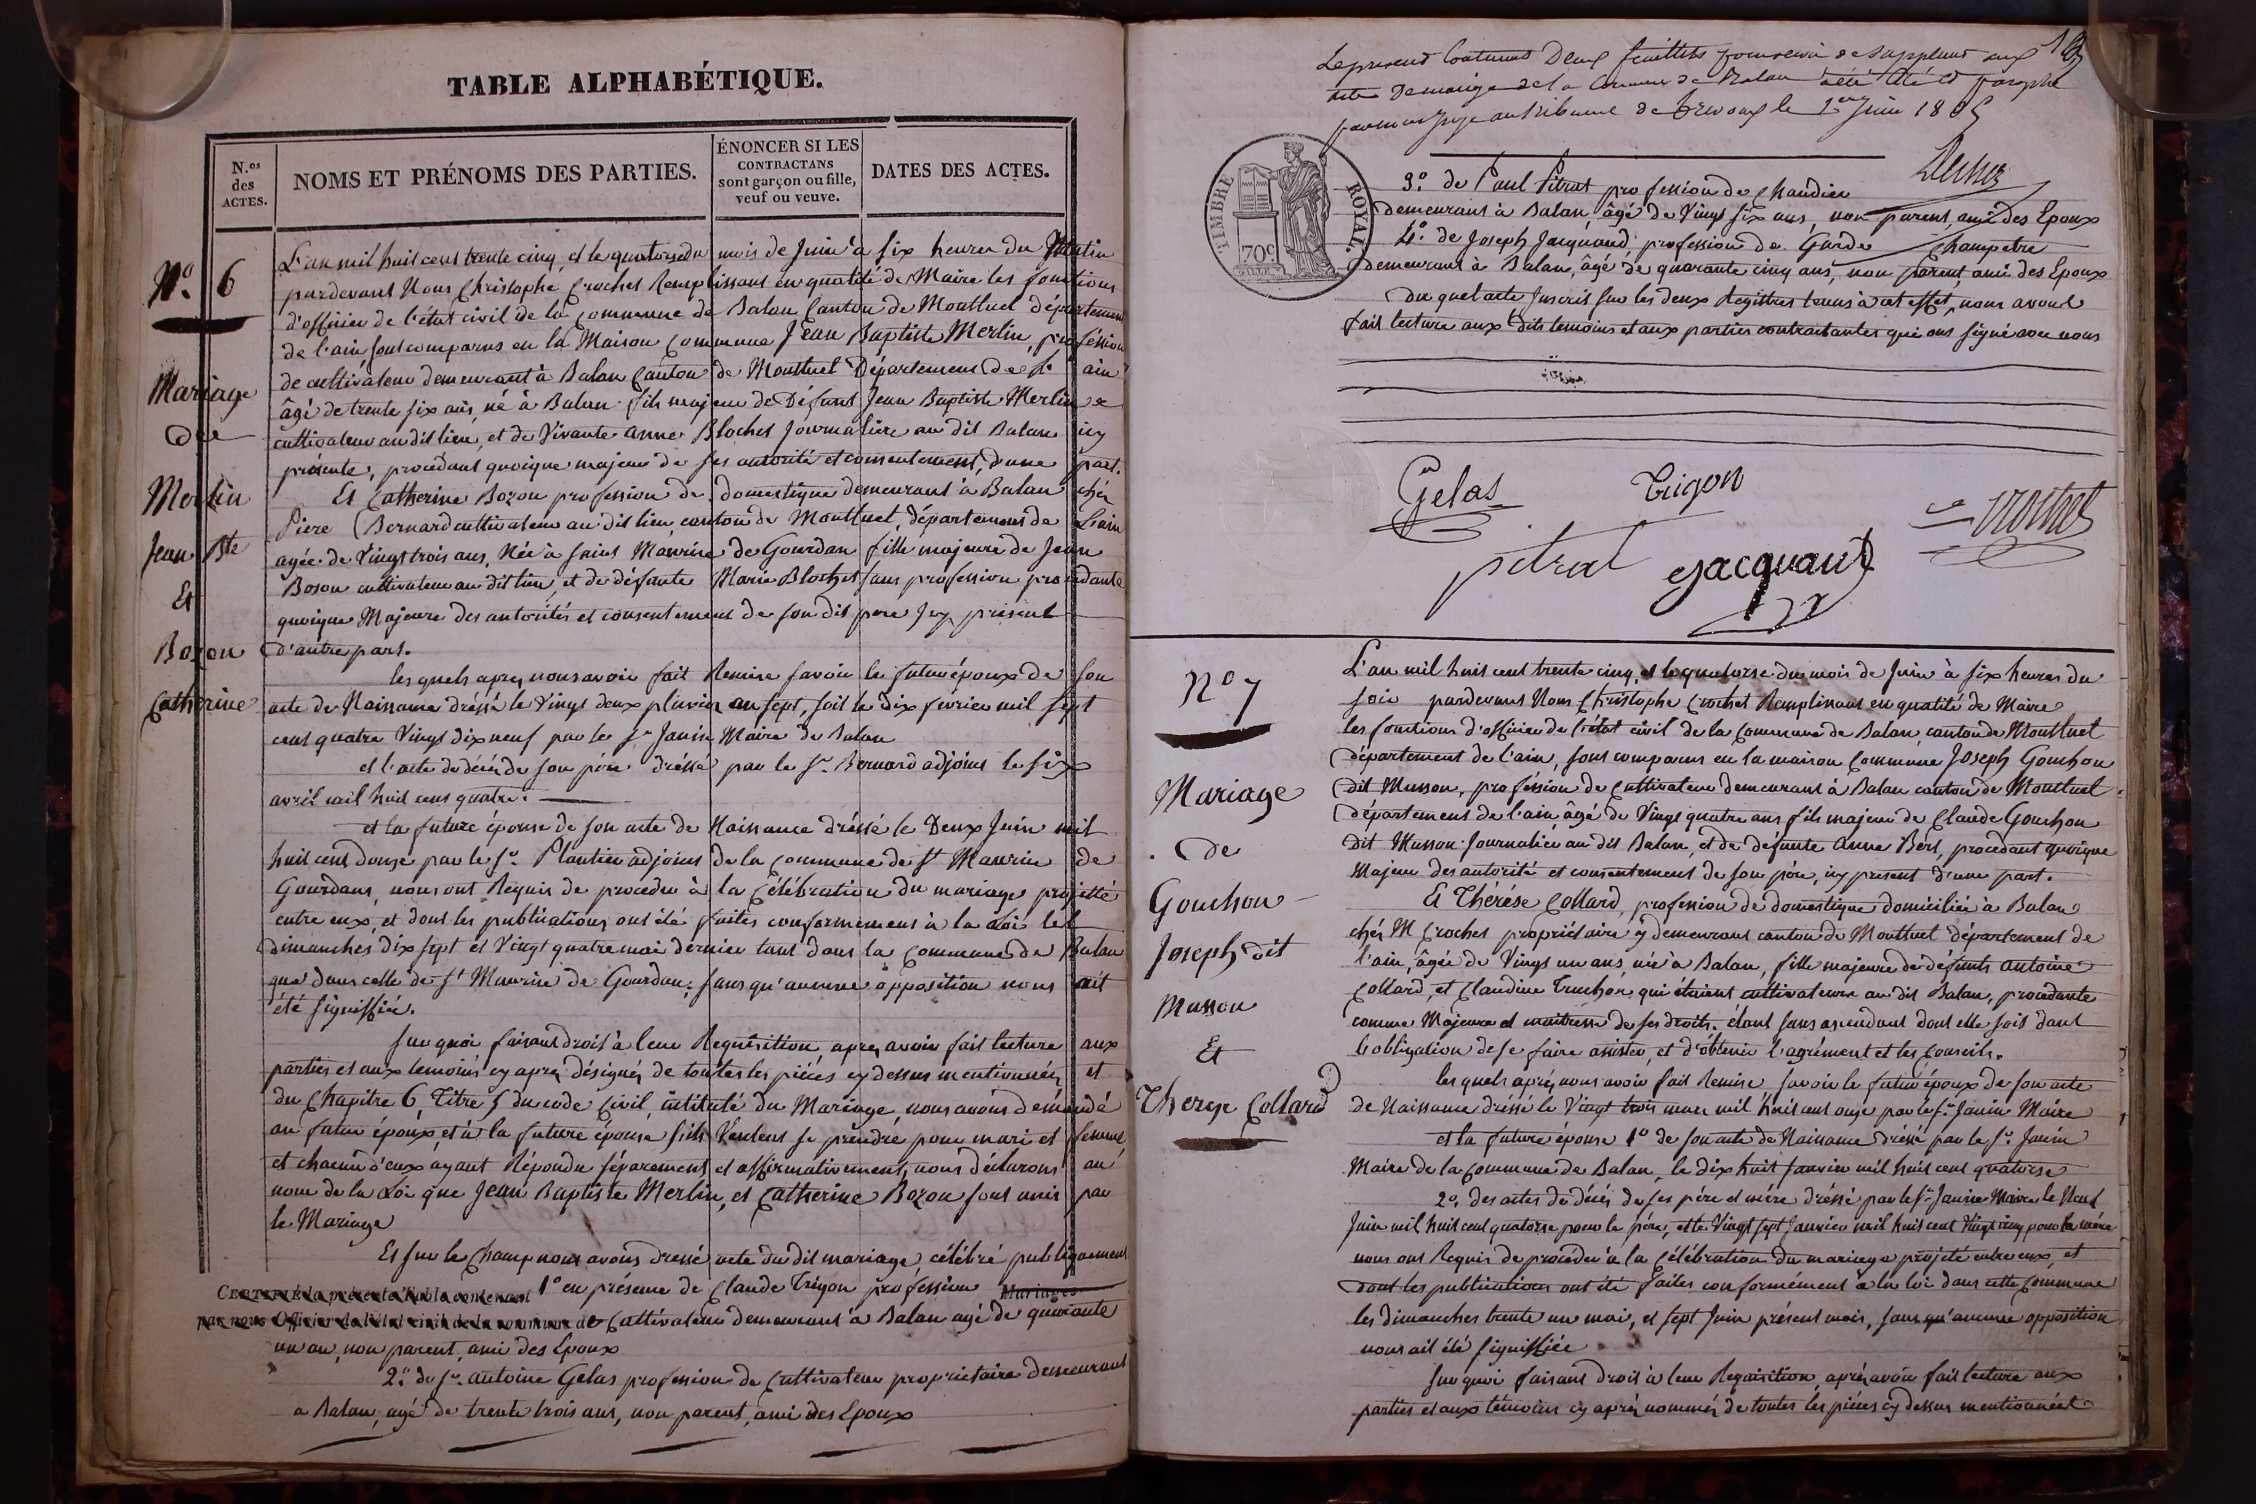 TABLE ALPHABÉTIQUE.
N.os
des
ACTES.
NOMS ET PRÉNOMS DES PARTIES.
ÉNONCER SI LES
CONTRACTANS
sont garçon ou fille,
veuf ou veuve.
DATES DES ACTES.
N.o 6
Mariage
de
Merlin
Jean Bte
Et
Bozon
Catherine
L'an mil huit cent trente cinq, et le quatorze du mois de Juin à six heures du Matin
pardevant Nous Christophe Crochet Remplissant en qualité de Maire les fonctions
d'officier de l'état civil de la commune de Balan Canton de Montluel département
de l'ain, sont comparus en la Maison Commune Jean Baptiste Merlin, profession
de cultivateur demeurant à Balan Canton de Montluel Département de L'ain
âgé de trente six ans, né à Balan fils majeur de Défunt Jean Baptiste Merlin
cultivateur au dit lieu, et de Vivante Anne Blochet Journalière au dit Balan icy
présente, procédant quoique majeur de ses autorité et consentement, d'une part.
Et Catherine Bozon profession de domestique demeurant à Balan chéz
Piere Bernard cultivateur au dit lieu canton de Montluel, département de L'ain
agée de Vingt trois ans, Née à Saint Maurice de Gourdan fille majeure de Jean
Boson cultivateur au dit lieu, et de défunte Marie Blochet sans profession procédante
quoique Majeure des autorités et consentement de son dit pere Icy présent
d'autre part.
lesquels après nous avoir fait Remise savoir le futur époux de son
acte de Naissance dréssé le Vingt deux pluviose an sept, soit le dix fevrier mil sept
cent quatre Vingt dix neuf par le Sr Janin Maire de Balan
et l'acte de décès de son père dréssé par le Sr. Bernard adjoint le six
avril mil huit cent quatre.
et la future épouse de son acte de Naissance dréssé le Deux Juin mil
huit cent douze par le Sr. Plantier adjoint de la commune de St Maurice de
Gourdans, nous ont Requis de procéder à la Célébration du mariage projetté
entre eux, et dont les publications ont été faites conformément à la Loi les
dimanches dix sept et Vingt quatre mai dernier tant dans la Commune de Balan
que dans celle de St Maurice de Gourdan, sans qu'aucune opposition nous ait
été signiffiée.
Sur quoi faisant droit à leur Requisition, après avoir fait lecture aux
parties et aux temoins cy après désignés de toutes les pièces cy dessus mentionnées, et
du Chapitre 6, Titre 5 du code Civil, intitulé du Mariage, nous avons demandé
au futur époux et à la future épouse s'ils Veulent se prendre pour mari et femme
et chacun d'eux ayant Répondu séparement et affirmativement, nous déclarons au
nom de la Loi que Jean Baptiste Merlin, et Catherine Bozon sont unis par
le Mariage
Et sur le Champ nous avons dressé acte du dit mariage, célébré publiquement
CERTIFIÉ la présente Table contenant 1o en présence de Claude Trigon profession Mariages
par nous Officier de l'état civil de la commune de Cultivateur demeurant à Balan agé de quarante
un an, non parent, ami des Epoux
2.o du Sr. antoine Gelas profession de Cultivateur propriétaire demeurant
a Balan, agé de trente trois ans, non parent, ami des Epoux
Le present Contenant Deux feuillets pour servir de supplement aux
actes de mariage de la commune de Balan a été coté et paraphé
par nous Juge au tribunal de Trevoux le 1er Juin 1835
TIMBRE ROYAL
70c
3.o de Paul Pitrat profession de
demeurant à Balan âgé de Vingt six ans, non parent, ami des Epoux
4.o de Joseph Jacquand profession de Garde Champetre
demeurant à Balan, âgé de quarante cinq ans, non parent, ami des Epoux
Du quel acte Inscrit sur les deux Registres tenus à cet effet, nous avons
fait lecture aux dits temoins et aux parties contractantes qui ont signé avec nous
Gelas
Trigon
Crochet
pitrat
Jacquand
No 7
Mariage
de
Gouchon
Joseph dit
Musson
Et
Thérèse Collard
L'an mil huit cent trente cinq, et le quatorze du mois de Juin à six heures du
soir pardevant Nous Christophe Crochet Remplissant en qualité de Maire
les fonctions d'officier de l'état civil de la Commune de Balan, canton de Montluel
département de l'ain, sont comparus en la maison Commune Joseph Gouchon
dit Musson, profession de Cultivateur demeurant à Balan canton de Montluel
département de l'ain âgé de Vingt quatre ans fils majeur de Claude Gouchon
dit Musson Journalier au dit Balan, et de défunte Anne Bert, procédant quoique
Majeur des autorité et consentement de son père, icy présent d'une part.
Et Thérése Collard, profession de domestique domiciliée à Balan
chéz M Crochet propriétaire y demeurant canton de Montluel département de
l'ain, âgée de Vingt un ans, née à Balan, fille majeure de défunts antoine
Collard, et Claudine Truchon qui étaient cultivateurs au dit Balan, procédante
comme Majeure et maitresse de ses droits, étant sans ascendant dont elle soit dans
l'obligation de se faire assister, et d'obtenir l'agrément et les Conseils.
les quels après nous avoir fait Remise savoir le futur époux de son acte
de Naissance dréssé le Vingt trois mars mil huit cent onze par le Sr. Janin Maire
et la future épouse 1o de son acte de Naissance dréssé par le Sr. Janin
Maire de la Commune de Balan, le dix huit Janvier mil huit cent quatorze
2o. des actes de décès de ses père et mère dréssé par le Sr. Janin Maire le Neuf
Juin mil huit cent quatorze pour le père, et le Vingt sept Janvier mil huit cent Vingt cinq pour la mère
nous ont Requis de procéder à la Célébration du mariage projeté entre eux, et
dont les publications ont été faites conformément à la loi dans cette Commune
les dimanches trente un mai, et sept Juin présent mois, sans qu'aucune opposition
nous ait été signiffiée
Sur quoi faisant droit à leur Requisition après avoir fait lecture aux
parties et aux témoins cy après nommés de toutes les pièces cy dessus mentionnées